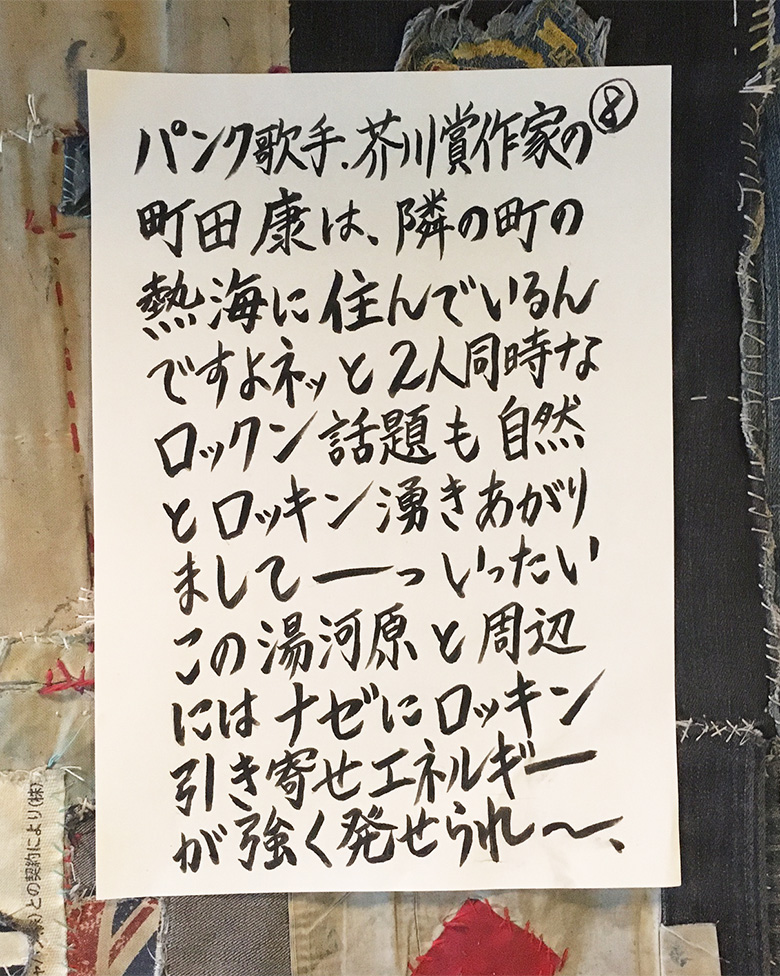 ⑧
パンク歌手、芥川賞作家の
町田康は、隣の町の
熱海に住んでいるん
ですよネッと2人同時な
ロックン話題も自然
とロッキン湧きあがり
まして——っいったい
この湯河原と周辺
にはナゼにロッキン
引き寄せエネルギー
が強く発せられ〜、
との契約により(株)